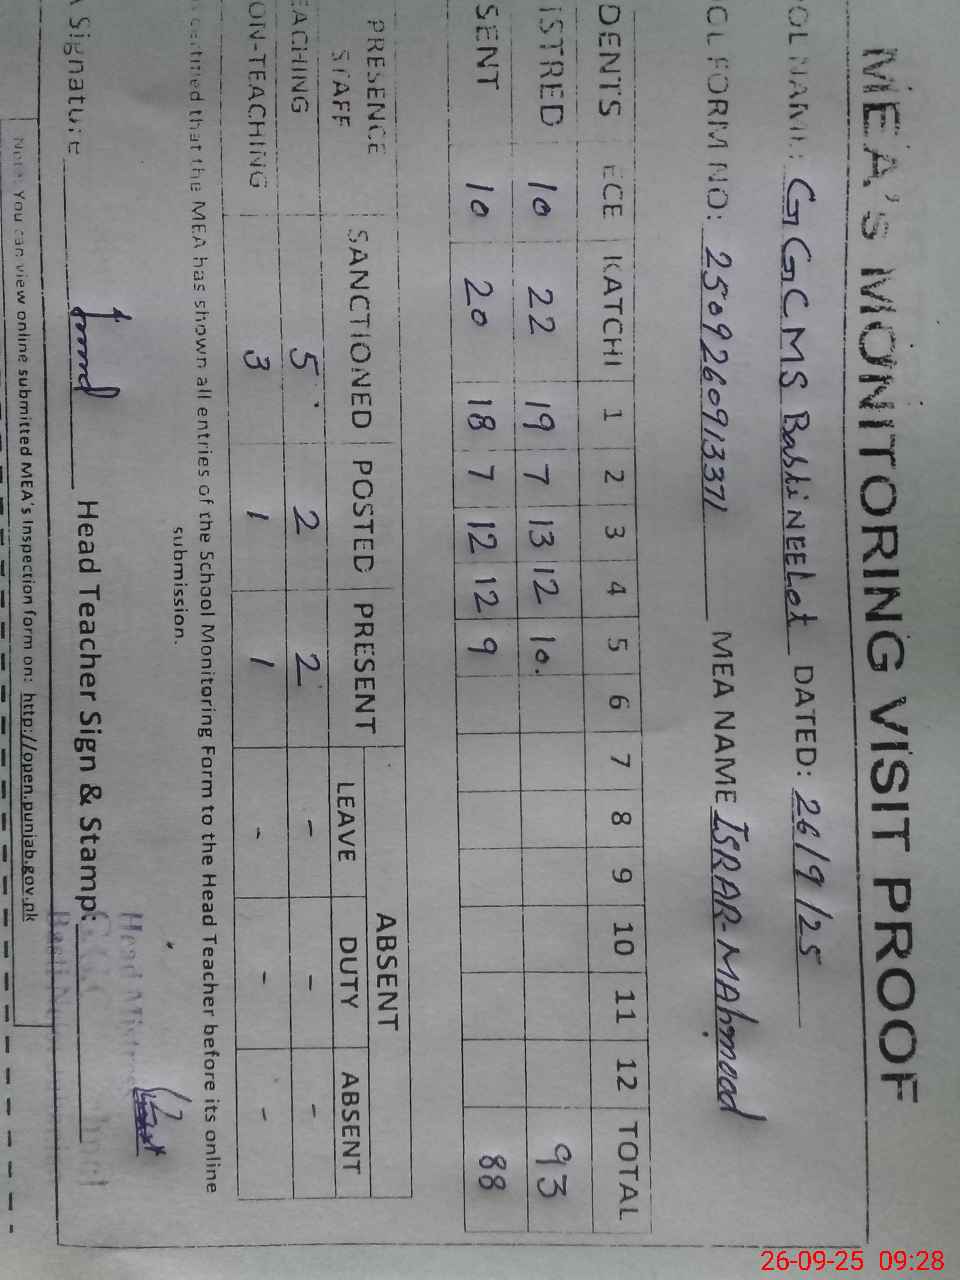 MEA'S MONITORING VISIT PROOF
OOL NAME: GGCMS Basti NEELot DATED: 26/9/25
OOL FORM NO: 2509260913371 MEA NAME ISRAR-MAhmood
DENTS ECE KATCHI 1 2 3 4 5 6 7 8 9 10 11 12 TOTAL
ISTRED 10 22 19 7 13 12 10. 93
SENT 10 20 18 7 12 12 9 88
PRESENCE STAFF SANCTIONED POSTED PRESENT ABSENT
LEAVE DUTY ABSENT
EACHING 5 2 2 - - -
ON-TEACHING 3 1 1 - - -
certified that the MEA has shown all entries of the School Monitoring Form to the Head Teacher before its online
submission.
Head Mistress
A Signature Head Teacher Sign & Stamp:
Note: You can view online submitted MEA's Inspection form on: http://open.punjab.gov.pk
26-09-25 09:28